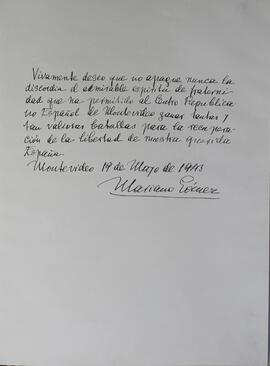 Vivamente deseo que no apague nunca la
discordia el admirable espíritu de fraterni-
dad que ha permitido al Centro Republica-
no Español de Montevideo ganar tantas y
tan valiosas batallas para la recupera-
ción de la libertad de nuestra querida
España.
Montevideo 19 de Mayo de 1943
Mariano Gómez